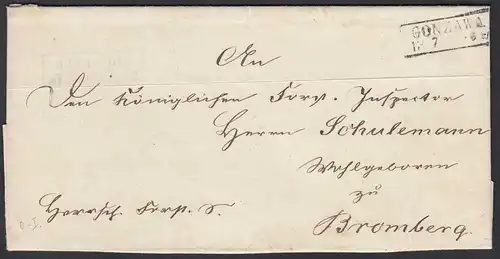 GONZAWA
7
An
Den Königlichen Forst. Inspector
Herrn Schulemann
Wohlgeboren
zu
Herrsch. Forst. S.
Bromberg.